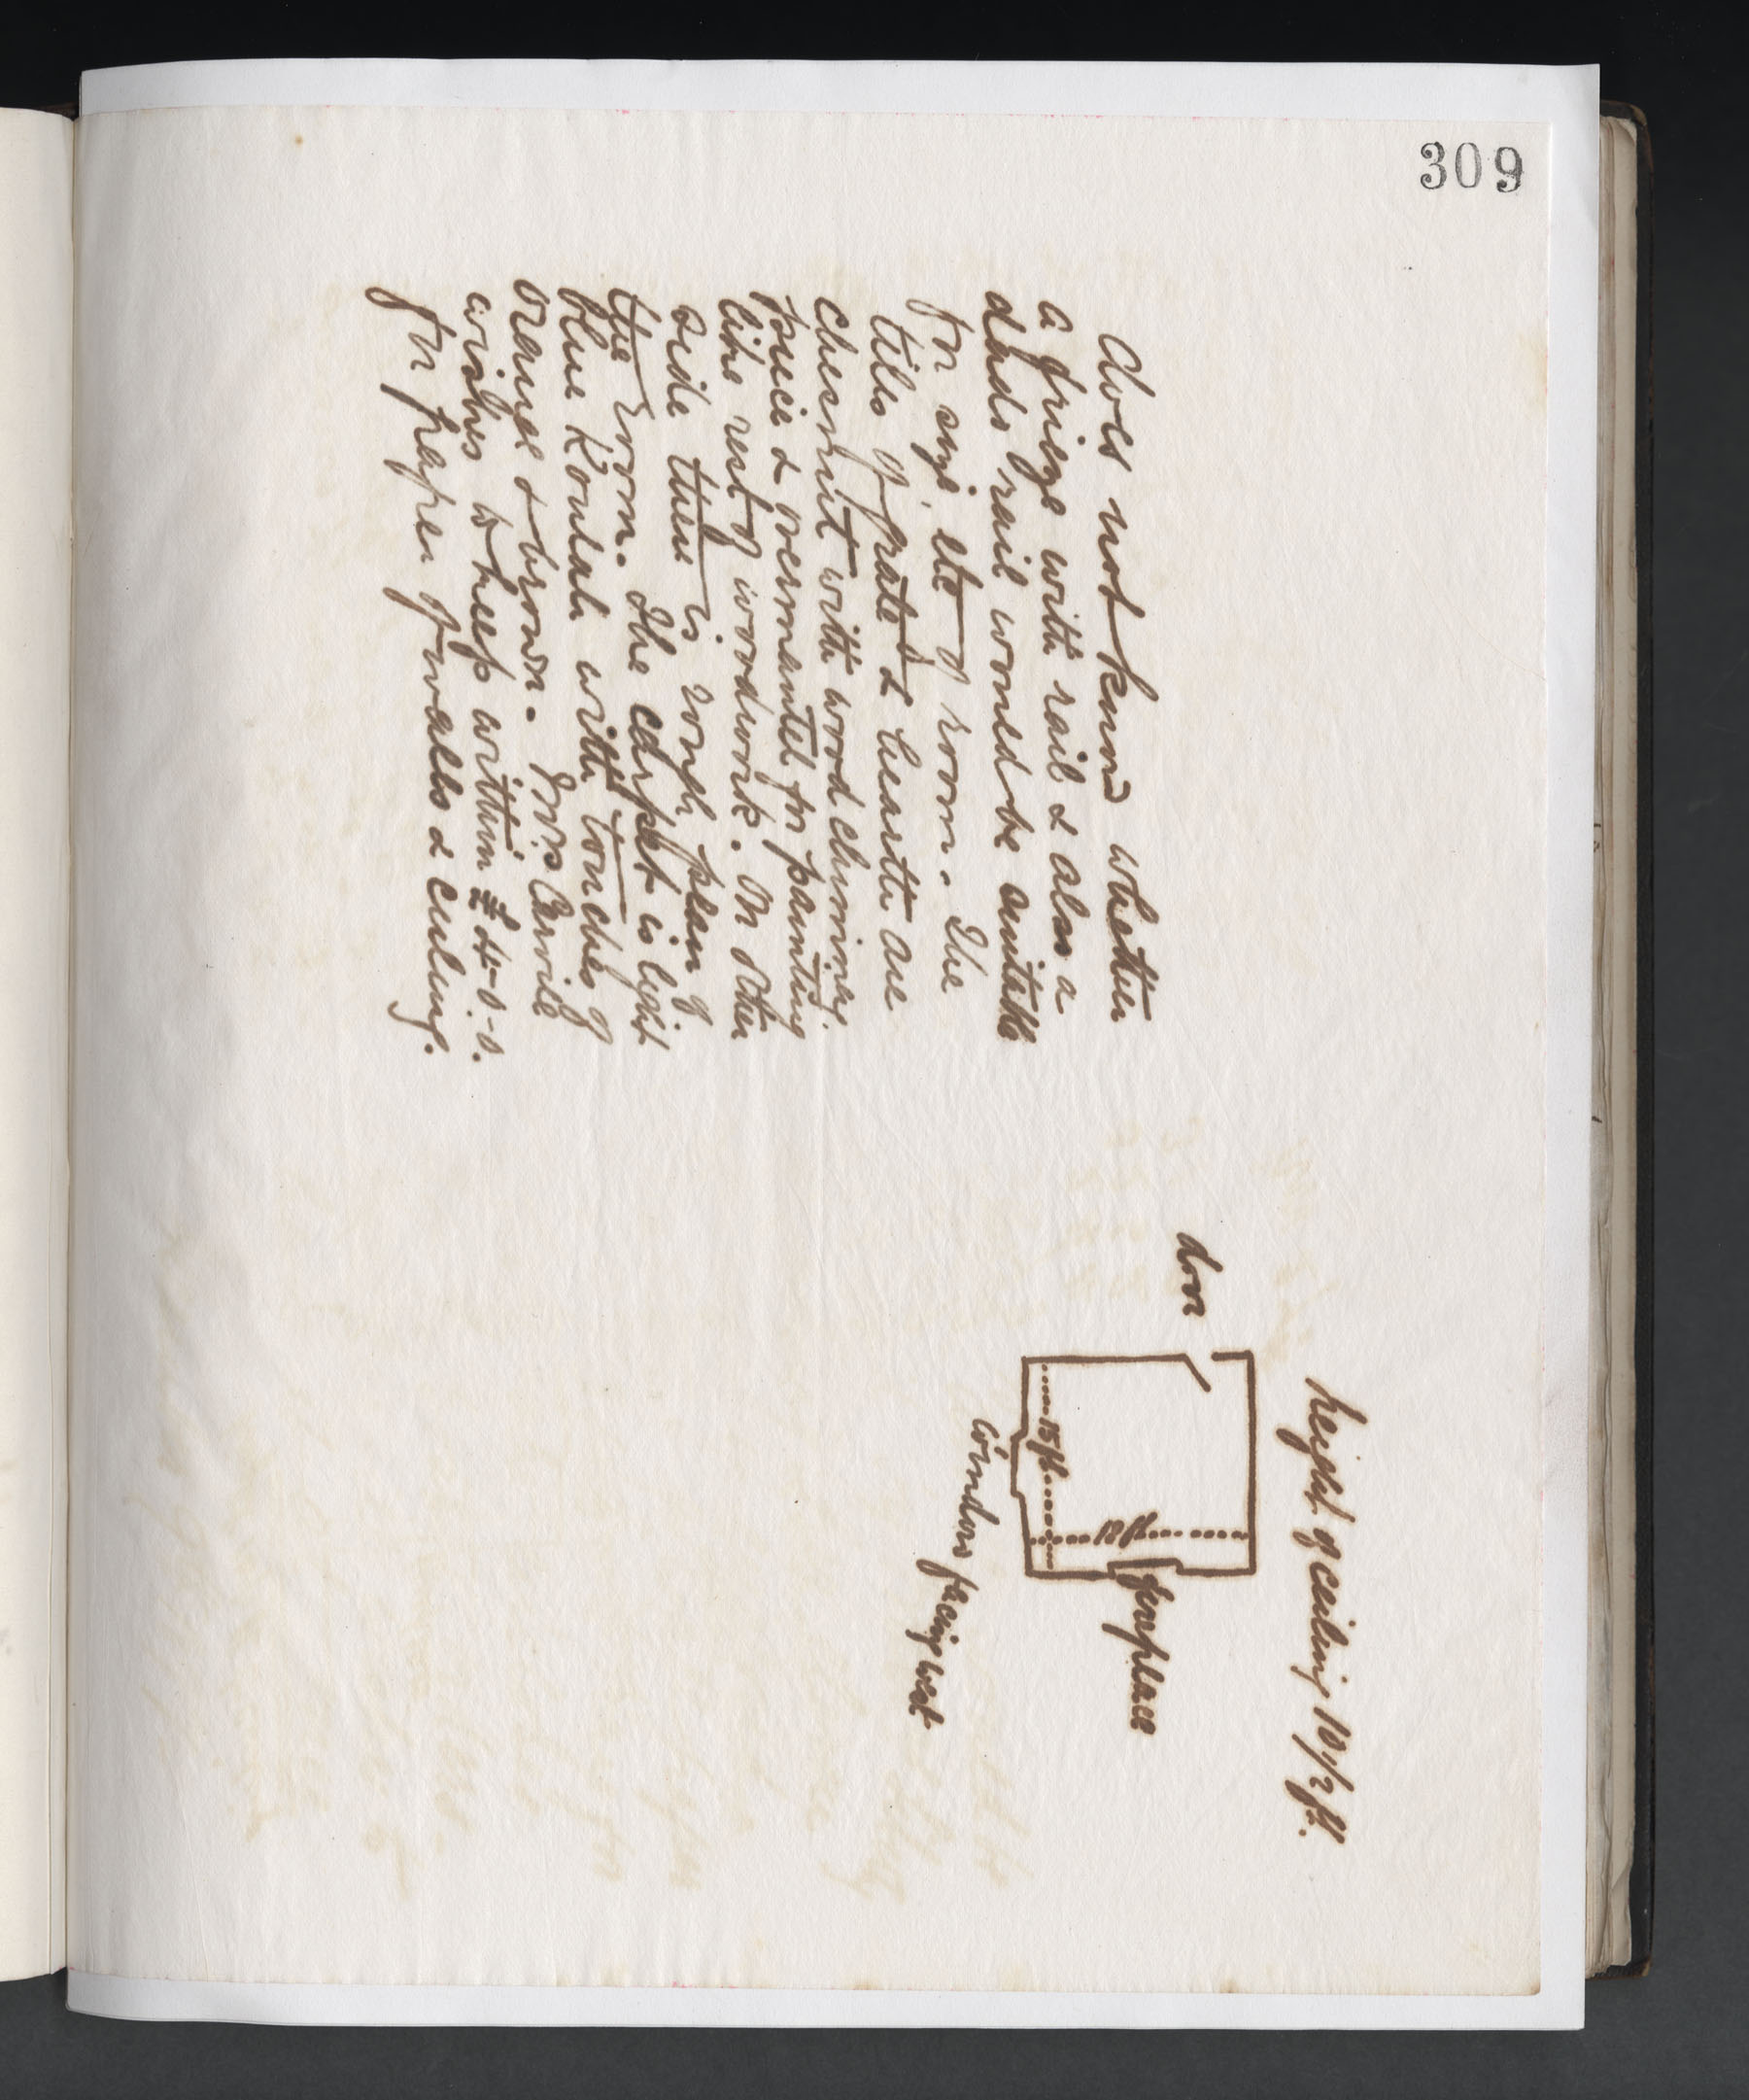 309
does not know whether
a frieze with rail & also a
dado rail would be suitable
for size, etc of room. The
tiles of grate & hearth are
chesnut with wood chimney
piece & overmantel for painting
like rest of woodwork. On other
side there is rough plan of
the room. The carpet is light
blue Koulah with touches of
orange & brown. Mrs
wishes to keep within £4-0-0.
for paper of walls & ceiling.
height of ceiling 10 1/2 ft.
door
fireplace
18 ft
15 ft
Windows facing west